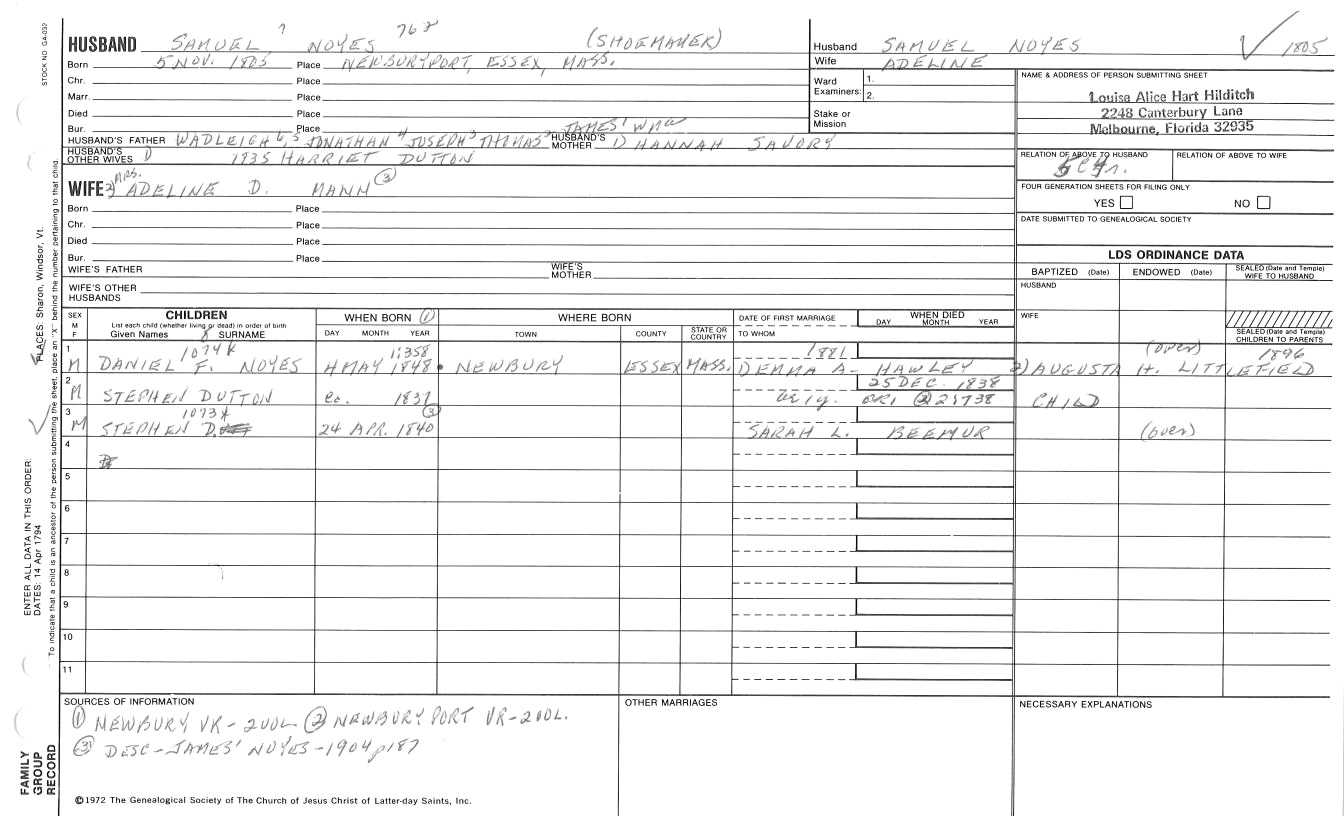 STOCK NO. GA-032
HUSBAND SAMUEL 7 NOYES 768 (SHOEMAKER)
Born 5 NOV. 1805 Place NEWBURYPORT, ESSEX, MASS.
Chr. Place
Marr. Place
Died Place
Bur. Place
HUSBAND'S FATHER WADLEIGH 6, 5 JONATHAN 4 JOSEPH 3 THOMAS 2 JAMES' WM HUSBAND'S MOTHER HANNAH SAVORY
HUSBAND'S OTHER WIVES 1) 1835 HARRIET DUTTON
WIFE 2) MRS. ADELINE D. MANN (3)
Born Place
Chr. Place
Died Place
Bur. Place
WIFE'S FATHER WIFE'S MOTHER
WIFE'S OTHER HUSBANDS
Husband SAMUEL NOYES 1805
Wife ADELINE
Ward Examiners: 1. 2.
Stake or Mission
NAME & ADDRESS OF PERSON SUBMITTING SHEET
Louise Alice Hart Hilditch
2248 Canterbury Lane
Melbourne, Florida 32935
RELATION OF ABOVE TO HUSBAND RELATION OF ABOVE TO WIFE
FOUR GENERATION SHEETS FOR FILING ONLY
YES NO
DATE SUBMITTED TO GENEALOGICAL SOCIETY
LDS ORDINANCE DATA
BAPTIZED (Date) ENDOWED (Date) SEALED (Date and Temple) WIFE TO HUSBAND
HUSBAND
WIFE
SEALED (Date and Temple) CHILDREN TO PARENTS
SEX M F
CHILDREN
List each child (whether living or dead) in order of birth
Given Names 8 SURNAME
WHEN BORN (1)
DAY MONTH YEAR
WHERE BORN
TOWN COUNTY STATE OR COUNTRY
DATE OF FIRST MARRIAGE
TO WHOM
WHEN DIED
DAY MONTH YEAR
1 M 1074 DANIEL F. NOYES 4 MAY 1848 NEWBURY ESSEX MASS. 1881 1) EMMA A. HAWLEY (OVER) 1896 2) AUGUSTA H. LITTLEFIELD
2 M STEPHEN DUTTON ca. 1837 25 DEC. 1838 CHILD
3 M 1073 STEPHEN D. 24 APR. 1840 (3) SARAH L. BEEMUR (OVER)
4
5
6
7
8
9
10
11
SOURCES OF INFORMATION
(1) NEWBURY VR-200L (2) NEWBURYPORT VR-200L.
(3) DESC-JAMES' NOYES-1904 p187
OTHER MARRIAGES
NECESSARY EXPLANATIONS
©1972 The Genealogical Society of The Church of Jesus Christ of Latter-day Saints, Inc.
FAMILY GROUP RECORD
ENTER ALL DATA IN THIS ORDER:
DATES: 14 Apr 1794
PLACES: Sharon, Windsor, Vt.
To indicate that a child is an ancestor of the person submitting the sheet, place an "X" behind the number pertaining to that child.